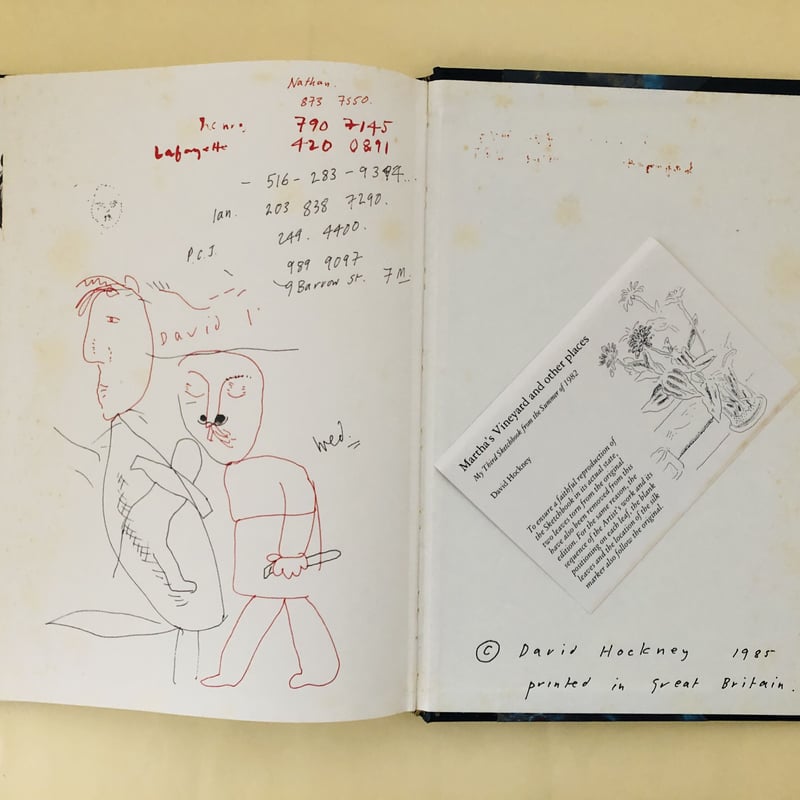 Nathan.
873 7550.
790 7145
Lafayette 420 0891
- 516 - 283 - 9394..
Ian. 203 838 7290.
249. 4400.
P.C.J.
989 9097
9 Barrow St. 7M
David
Wed.
Martha's Vineyard and other places
My Third Sketchbook from the Summer of 1982
David Hockney
To ensure a faithful reproduction of
the Sketchbook in its actual state,
two leaves torn from the original
have also been removed from this
edition. For the same reason, the
sequence of the Artist's work and its
positioning on each leaf, the blank
leaves and the location of the silk
marker also follow the original.
© David Hockney 1985
printed in Great Britain.